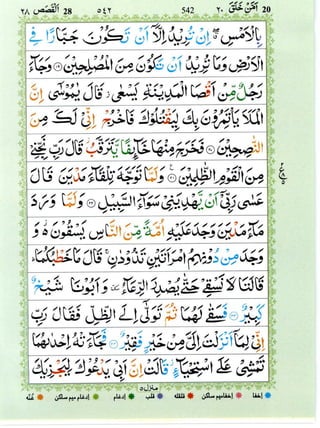 ٢٨ اَلْقَصَص 28 ٥٤٢ 542 اَمَّنْ خَلَقَ ٢٠ 20
بِالْاَمْسِ ۖ اِنْ تُرِيْدُ اِلَّاۤ اَنْ تَكُوْنَ جَبَّارًا فِي
الْاَرْضِ وَمَا تُرِيْدُ اَنْ تَكُوْنَ مِنَ الْمُصْلِحِيْنَ ۝ وَجَآءَ
رَجُلٌ مِّنْ اَقْصَا الْمَدِيْنَةِ يَسْعٰى ۫ قَالَ يٰمُوْسٰۤى اِنَّ
الْمَلَاَ يَاْتَمِرُوْنَ بِكَ لِيَقْتُلُوْكَ فَاخْرُجْ اِنِّيْ لَكَ مِنَ
النّٰصِحِيْنَ ۝ فَخَرَجَ مِنْهَا خَآئِفًا يَّتَرَقَّبُ ۫ قَالَ رَبِّ نَجِّنِيْ
مِنَ الْقَوْمِ الظّٰلِمِيْنَ ۝ وَلَمَّا تَوَجَّهَ تِلْقَآءَ مَدْيَنَ قَالَ
عَسٰى رَبِّيْۤ اَنْ يَّهْدِيَنِيْ سَوَآءَ السَّبِيْلِ ۝ وَلَمَّا وَرَدَ
مَآءَ مَدْيَنَ وَجَدَ عَلَيْهِ اُمَّةً مِّنَ النَّاسِ يَسْقُوْنَ ۬ وَ
وَجَدَ مِنْ دُوْنِهِمُ امْرَاَتَيْنِ تَذُوْدٰنِ ۚ قَالَ مَا خَطْبُكُمَا ؕ
قَالَتَا لَا نَسْقِيْ حَتّٰى يُصْدِرَ الرِّعَآءُ ٚ وَ اَبُوْنَا شَيْخٌ
كَبِيْرٌ ۝ فَسَقٰى لَهُمَا ثُمَّ تَوَلّٰۤى اِلَى الظِّلِّ فَقَالَ رَبِّ
اِنِّيْ لِمَاۤ اَنْزَلْتَ اِلَيَّ مِنْ خَيْرٍ فَقِيْرٌ ۝ فَجَآءَتْهُ اِحْدٰىهُمَا
تَمْشِيْ عَلَى اسْتِحْيَآءٍ ؗ قَالَتْ اِنَّ اَبِيْ يَدْعُوْكَ لِيَجْزِيَكَ
منزل ٥
اخفا اخفا میم ساکن قلقلہ قلب ادغام ادغام میم ساکن غنّہ